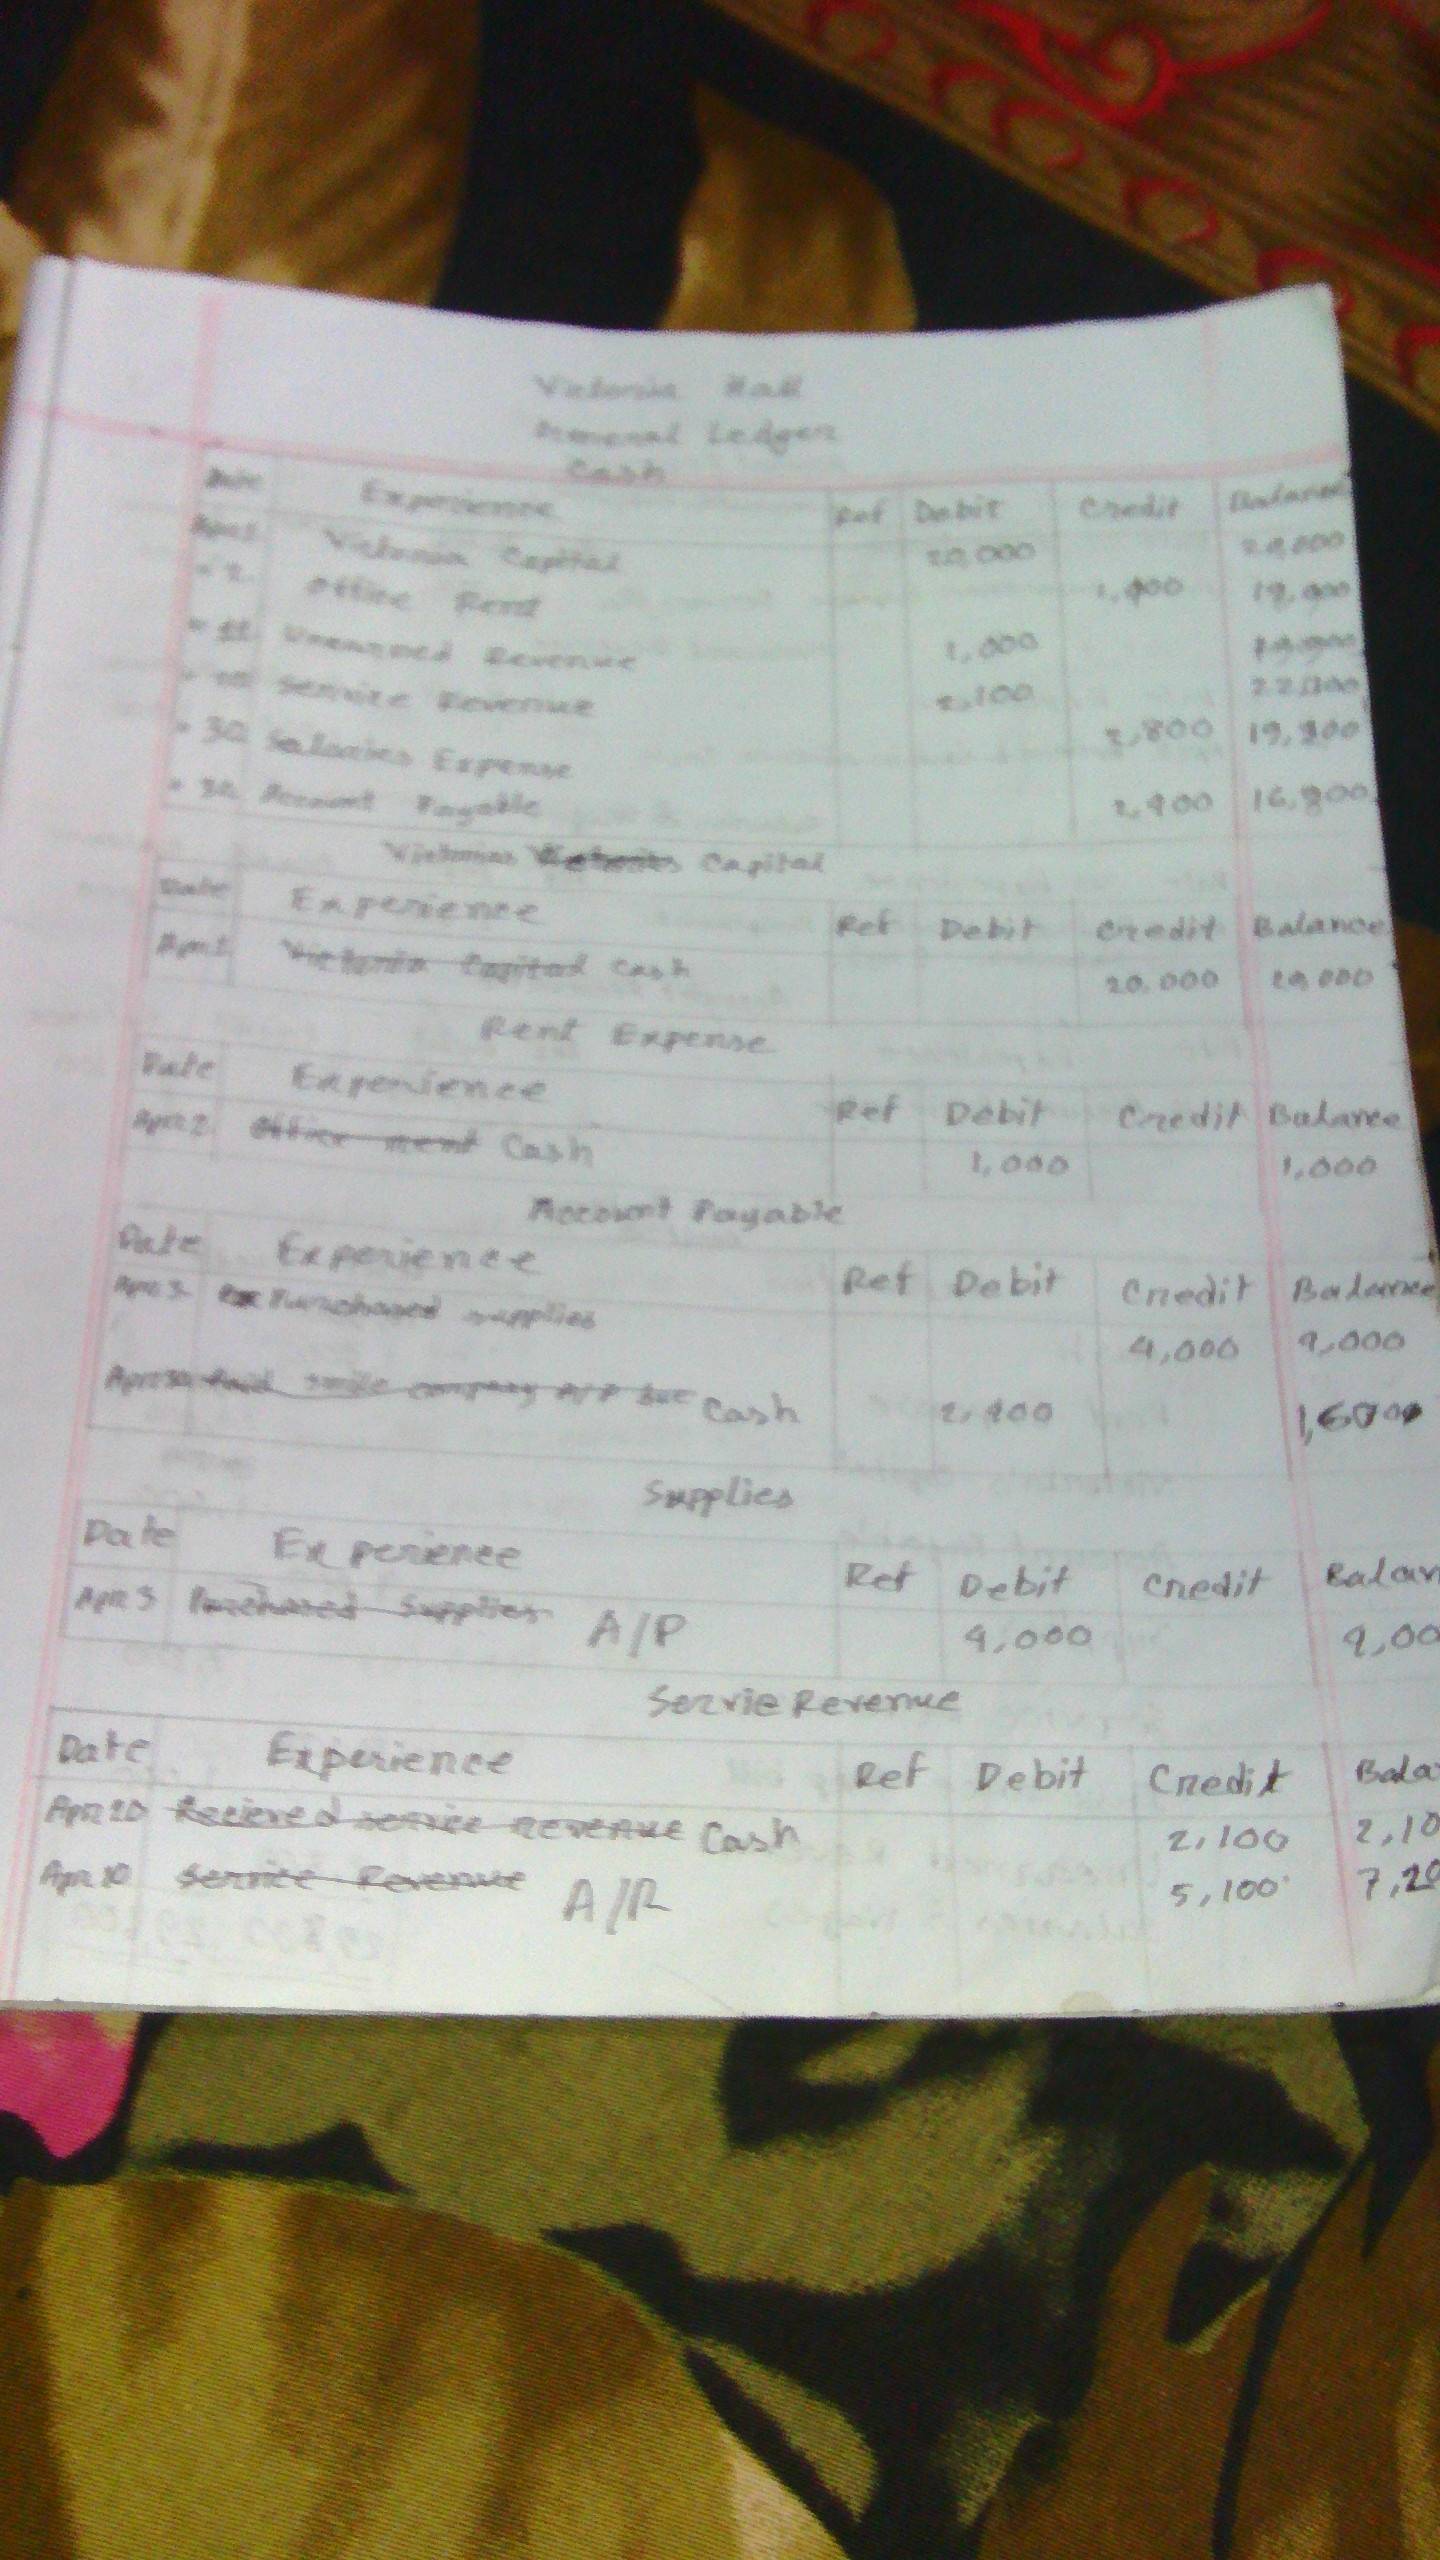 Victoria Hall
General Ledger
Cash
Date Experience Ref Debit Credit Balance
Apr.1 Victoria Capital 20,000 20,000
" 2 Office Rent
" 11 Unearned Revenue 1,000
Service Revenue 2,100
" 30 Salaries Expense 2,800
" 30 Account Payable
Victorias Capital
Date Experience Ref Debit Credit Balance
Apr.1 Victoria Capital Cash 20,000 20,000
Rent Expense
Date Experience Ref Debit Credit Balance
Apr.2 Office rent Cash 1,000 1,000
Account Payable
Date Experience Ref Debit Credit Balance
Apr.3 Purchased supplies 4,000 4,000
Apr.30 Paid smile company A/P due Cash
Supplies
Date Experience Ref Debit Credit Balan
Apr.3 Purchased Supplies A/P 4,000 4,00
Servie Revenue
Date Experience Ref Debit Credit Bala
Apr.20 Recieved service revenue Cash 2,100 2,10
Apr.10 Service Revenue A/R 5,100 7,20